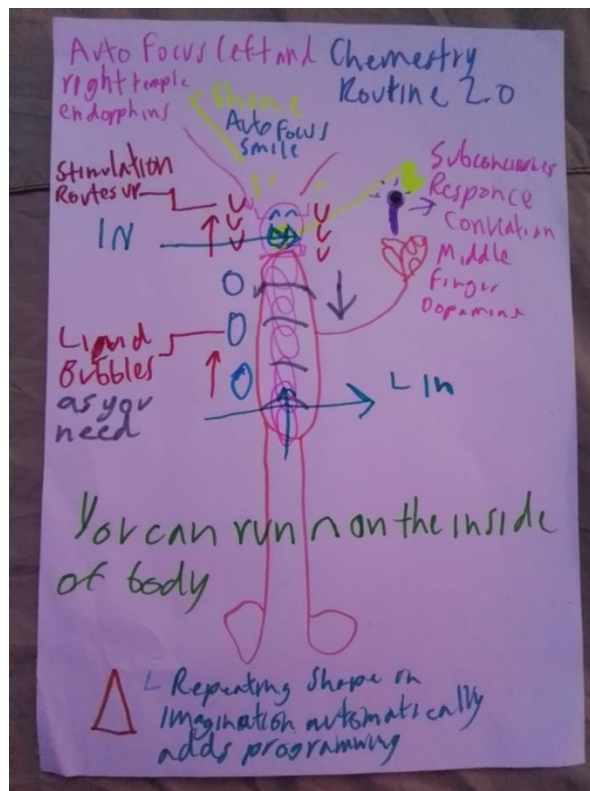 Auto Focus Left and
right temple
endorphins
Chemestry
Routine 2.0
Shine
Auto focus
Smile
Stimulation
Routes up
IN
Subconcious
Responce
Middle
Finger
Dopamine
Liquid
Bubbles
as you
need
L In
You can run n on the inside
of body
L Repeating Shape on
Imagination automatically
adds programming